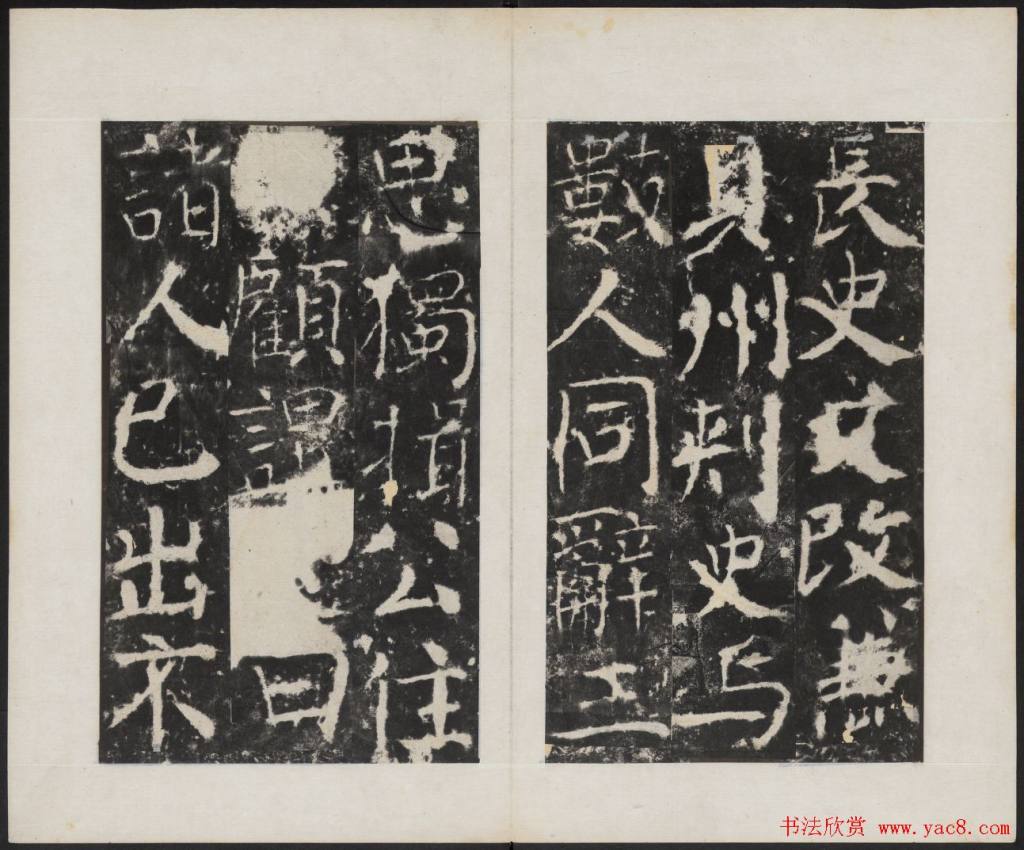 長史又改兼
貝州刾史与
數人同辭三
思獨揖公住
顧謂曰
諸人已出不
书法欣赏 www.yac8.com